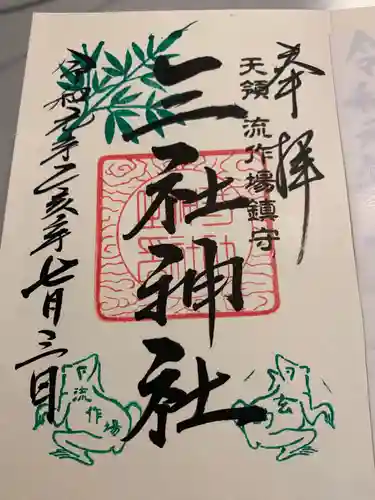 奉拝
天領 流作場鎮守
三社神社
令和元年己亥年七月三日
流作場
玄